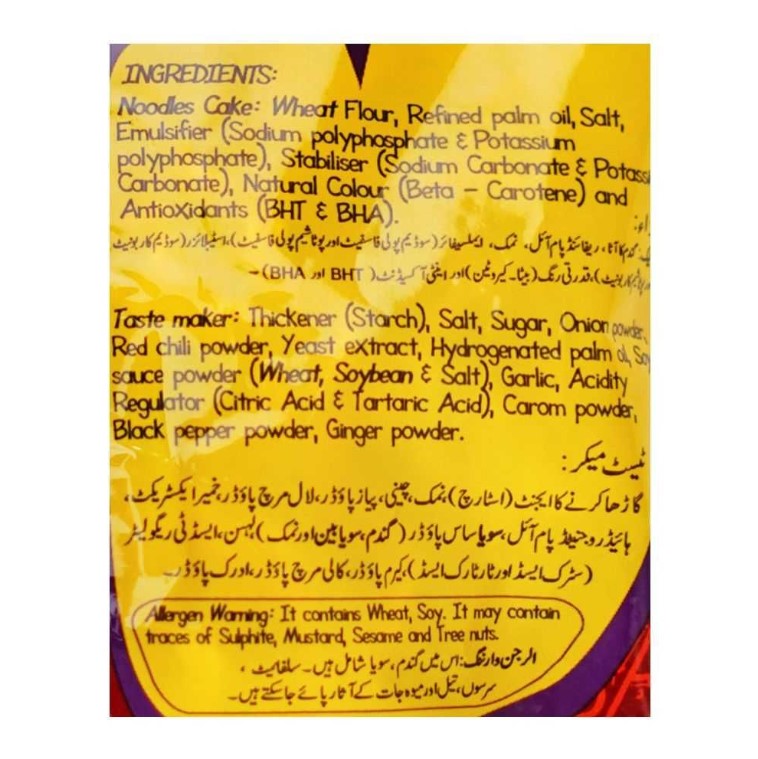 INGREDIENTS:
Noodles Cake: Wheat Flour, Refined palm oil, Salt,
Emulsifier (Sodium polyphosphate & Potassium
polyphosphate), Stabiliser (Sodium Carbonate & Potass
Carbonate), Natural Colour (Beta - Carotene) and
AntioXidants (BHT & BHA).
گندم کا آٹا، ریفائنڈ پام آئل، نمک، ایملسیفائر (سوڈیم پولی فاسفیٹ اور پوٹاشیم پولی فاسفیٹ)، اسٹیبلائزر (سوڈیم کاربونیٹ
کاربونیٹ)، قدرتی رنگ (بیٹا۔ کیروٹین) اور اینٹی آکسیڈنٹ (BHT اور BHA)۔
Taste maker: Thickener (Starch), Salt, Sugar, Onion powder,
Red chili powder, Yeast eXtract, Hydrogenated palm oil, Soy
sauce powder (Wheat, Soybean & Salt), Garlic, Acidity
Regulator (Citric Acid & Tartaric Acid), Carom powder,
Black pepper powder, Ginger powder.
ٹیسٹ میکر:
گاڑھا کرنے کا ایجنٹ (اسٹارچ)، نمک، چینی، پیاز پاؤڈر، لال مرچ پاؤڈر، خمیر ایکسٹریکٹ،
ہائیڈروجنیٹڈ پام آئل، سویا ساس پاؤڈر (گندم، سویا بین اور نمک)، لہسن، ایسڈٹی ریگولیٹر
(سٹرک ایسڈ اور ٹارٹارک ایسڈ)، کیرم پاؤڈر، کالی مرچ پاؤڈر، ادرک پاؤڈر۔
Allergen Warning: It contains Wheat, Soy. It may contain
traces of Sulphite, Mustard, Sesame and Tree nuts.
الرجن وارننگ: اس میں گندم، سویا شامل ہیں۔ سلفائیٹ،
سرسوں، تیل اور میوہ جات کے آثار پائے جا سکتے ہیں۔